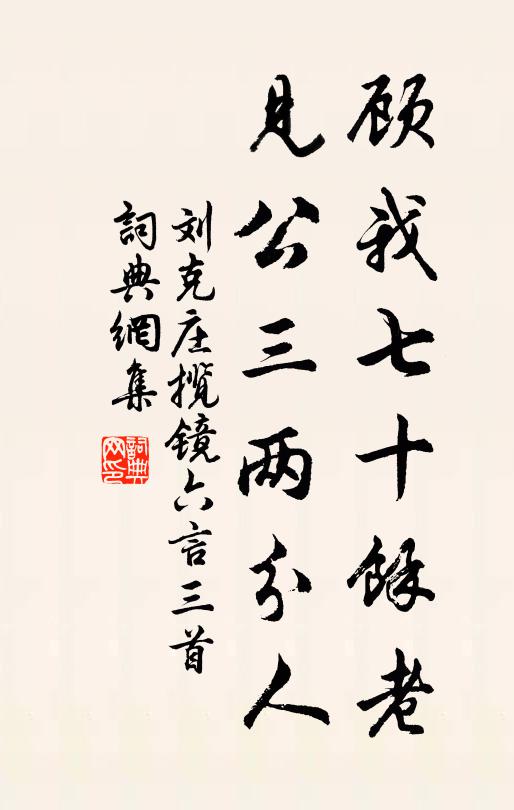 顾我七十餘老
見公三两分人
刘克庄揽镜六言三首
詞典網集
詞典
网印